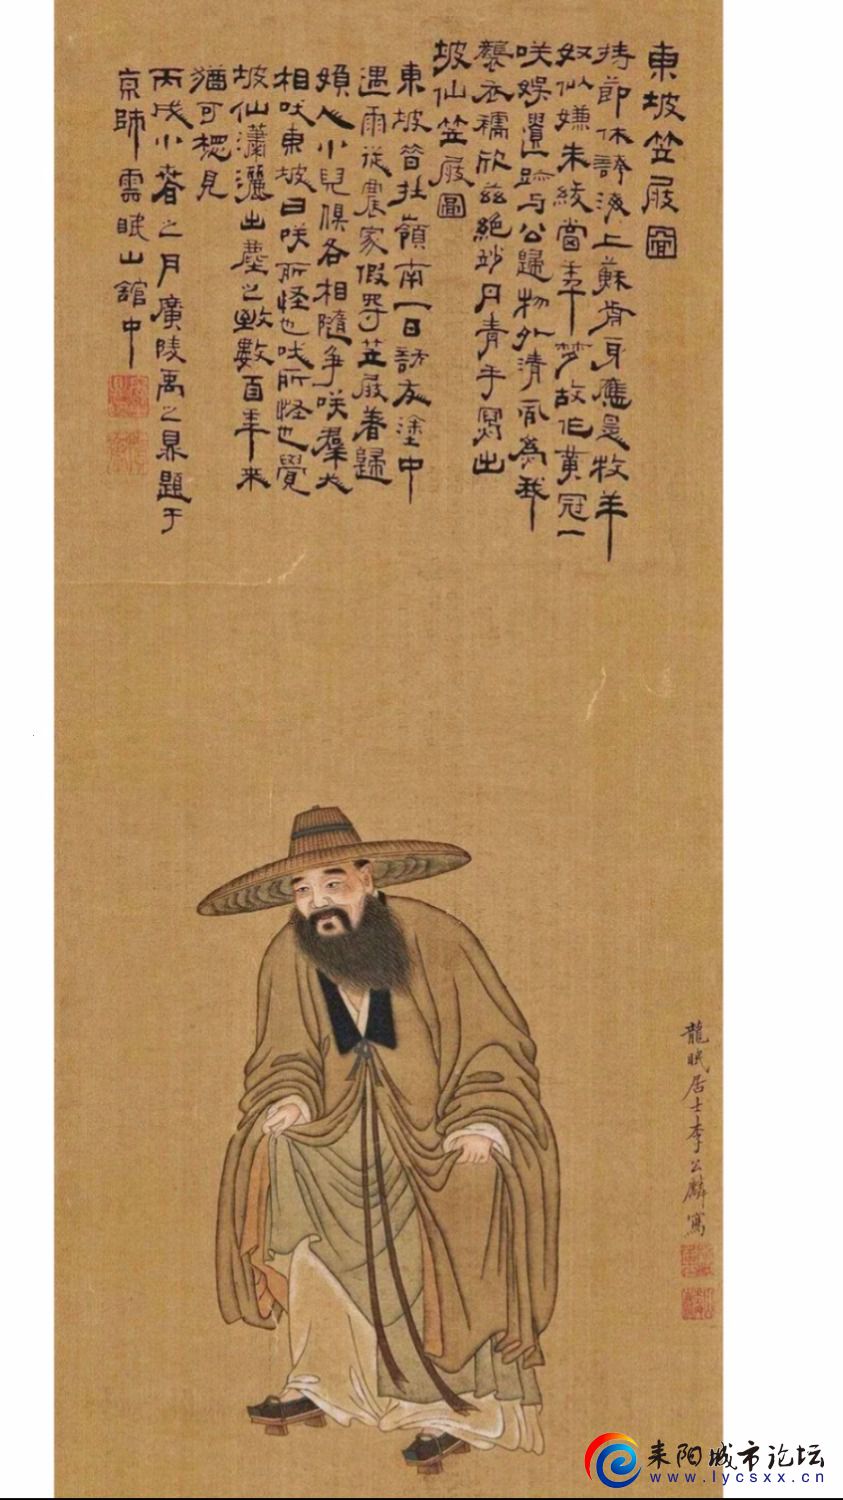 東坡笠屐圖
持節休誇海上蘇前身應是牧羊
奴似嫌朱紱當年夢故作黃冠一
咲娛遺跡与公歸物外清風為我
襲衣襦欣兹絕妙丹青手寫出
坡仙笠屐圖
東坡昔在嶺南一日訪友塗中
遇雨從農家假箬笠屐着歸
婦人小兒俱各相隨爭咲羣犬
相吠東坡曰咲所怪也吠所怪也覺
坡仙瀟灑出塵之致數百年來
猶可想見
丙戌小春之月廣陵禹之鼎題于
京師雲眠山舘中
龍眠居士李公麟寫
耒阳城市论坛
www.lycsxx.cn